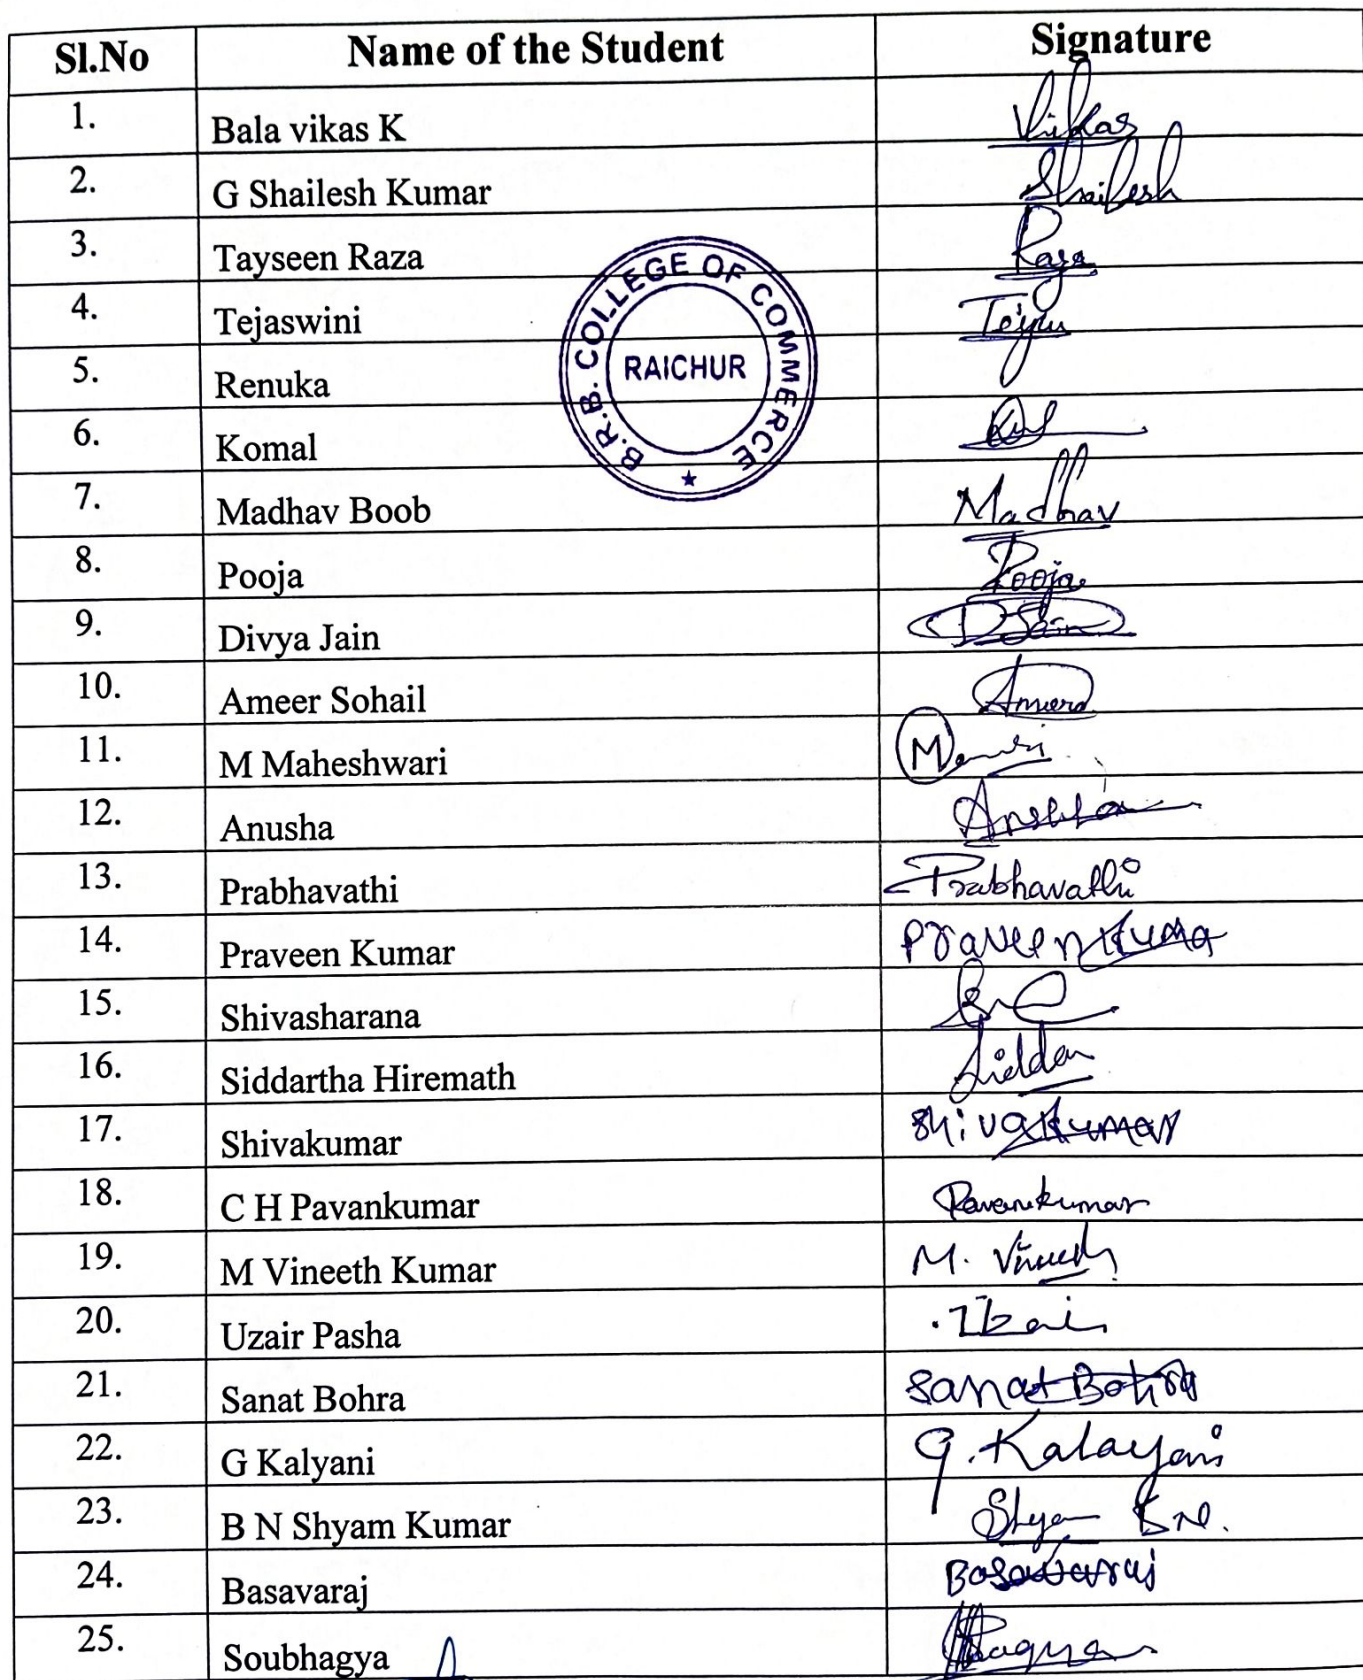 Sl.No Name of the Student Signature
1. Bala vikas K Vikas
2. G Shailesh Kumar Shailesh
3. Tayseen Raza Raza
4. Tejaswini Teju
5. Renuka
6. Komal
7. Madhav Boob Madhav
8. Pooja Pooja
9. Divya Jain D Jain
10. Ameer Sohail Ameer
11. M Maheshwari
12. Anusha Anusha
13. Prabhavathi Prabhavathi
14. Praveen Kumar Praveen Kuma
15. Shivasharana
16. Siddartha Hiremath
17. Shivakumar Shivakumar
18. C H Pavankumar Pavankumar
19. M Vineeth Kumar M. Vineeth
20. Uzair Pasha
21. Sanat Bohra Sanat Bohra
22. G Kalyani G. Kalayani
23. B N Shyam Kumar Shyam B.N.
24. Basavaraj Basavaraj
25. Soubhagya
B.R.B. COLLEGE OF COMMERCE
RAICHUR